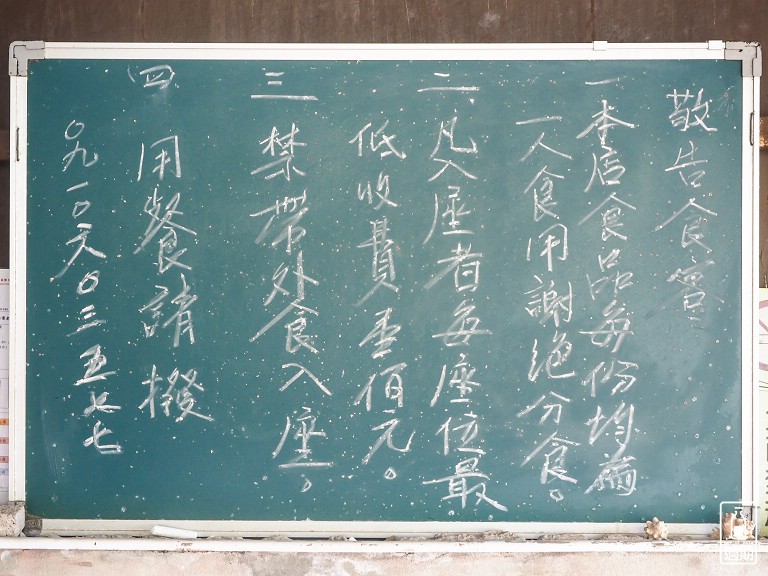 敬告食客
一本店食品每份均為
一人食用謝絕分食。
二、凡入座者每座位最
低收費壹佰元。
三禁帶外食入座。
四、用餐請撥
○九一○六○三五七七